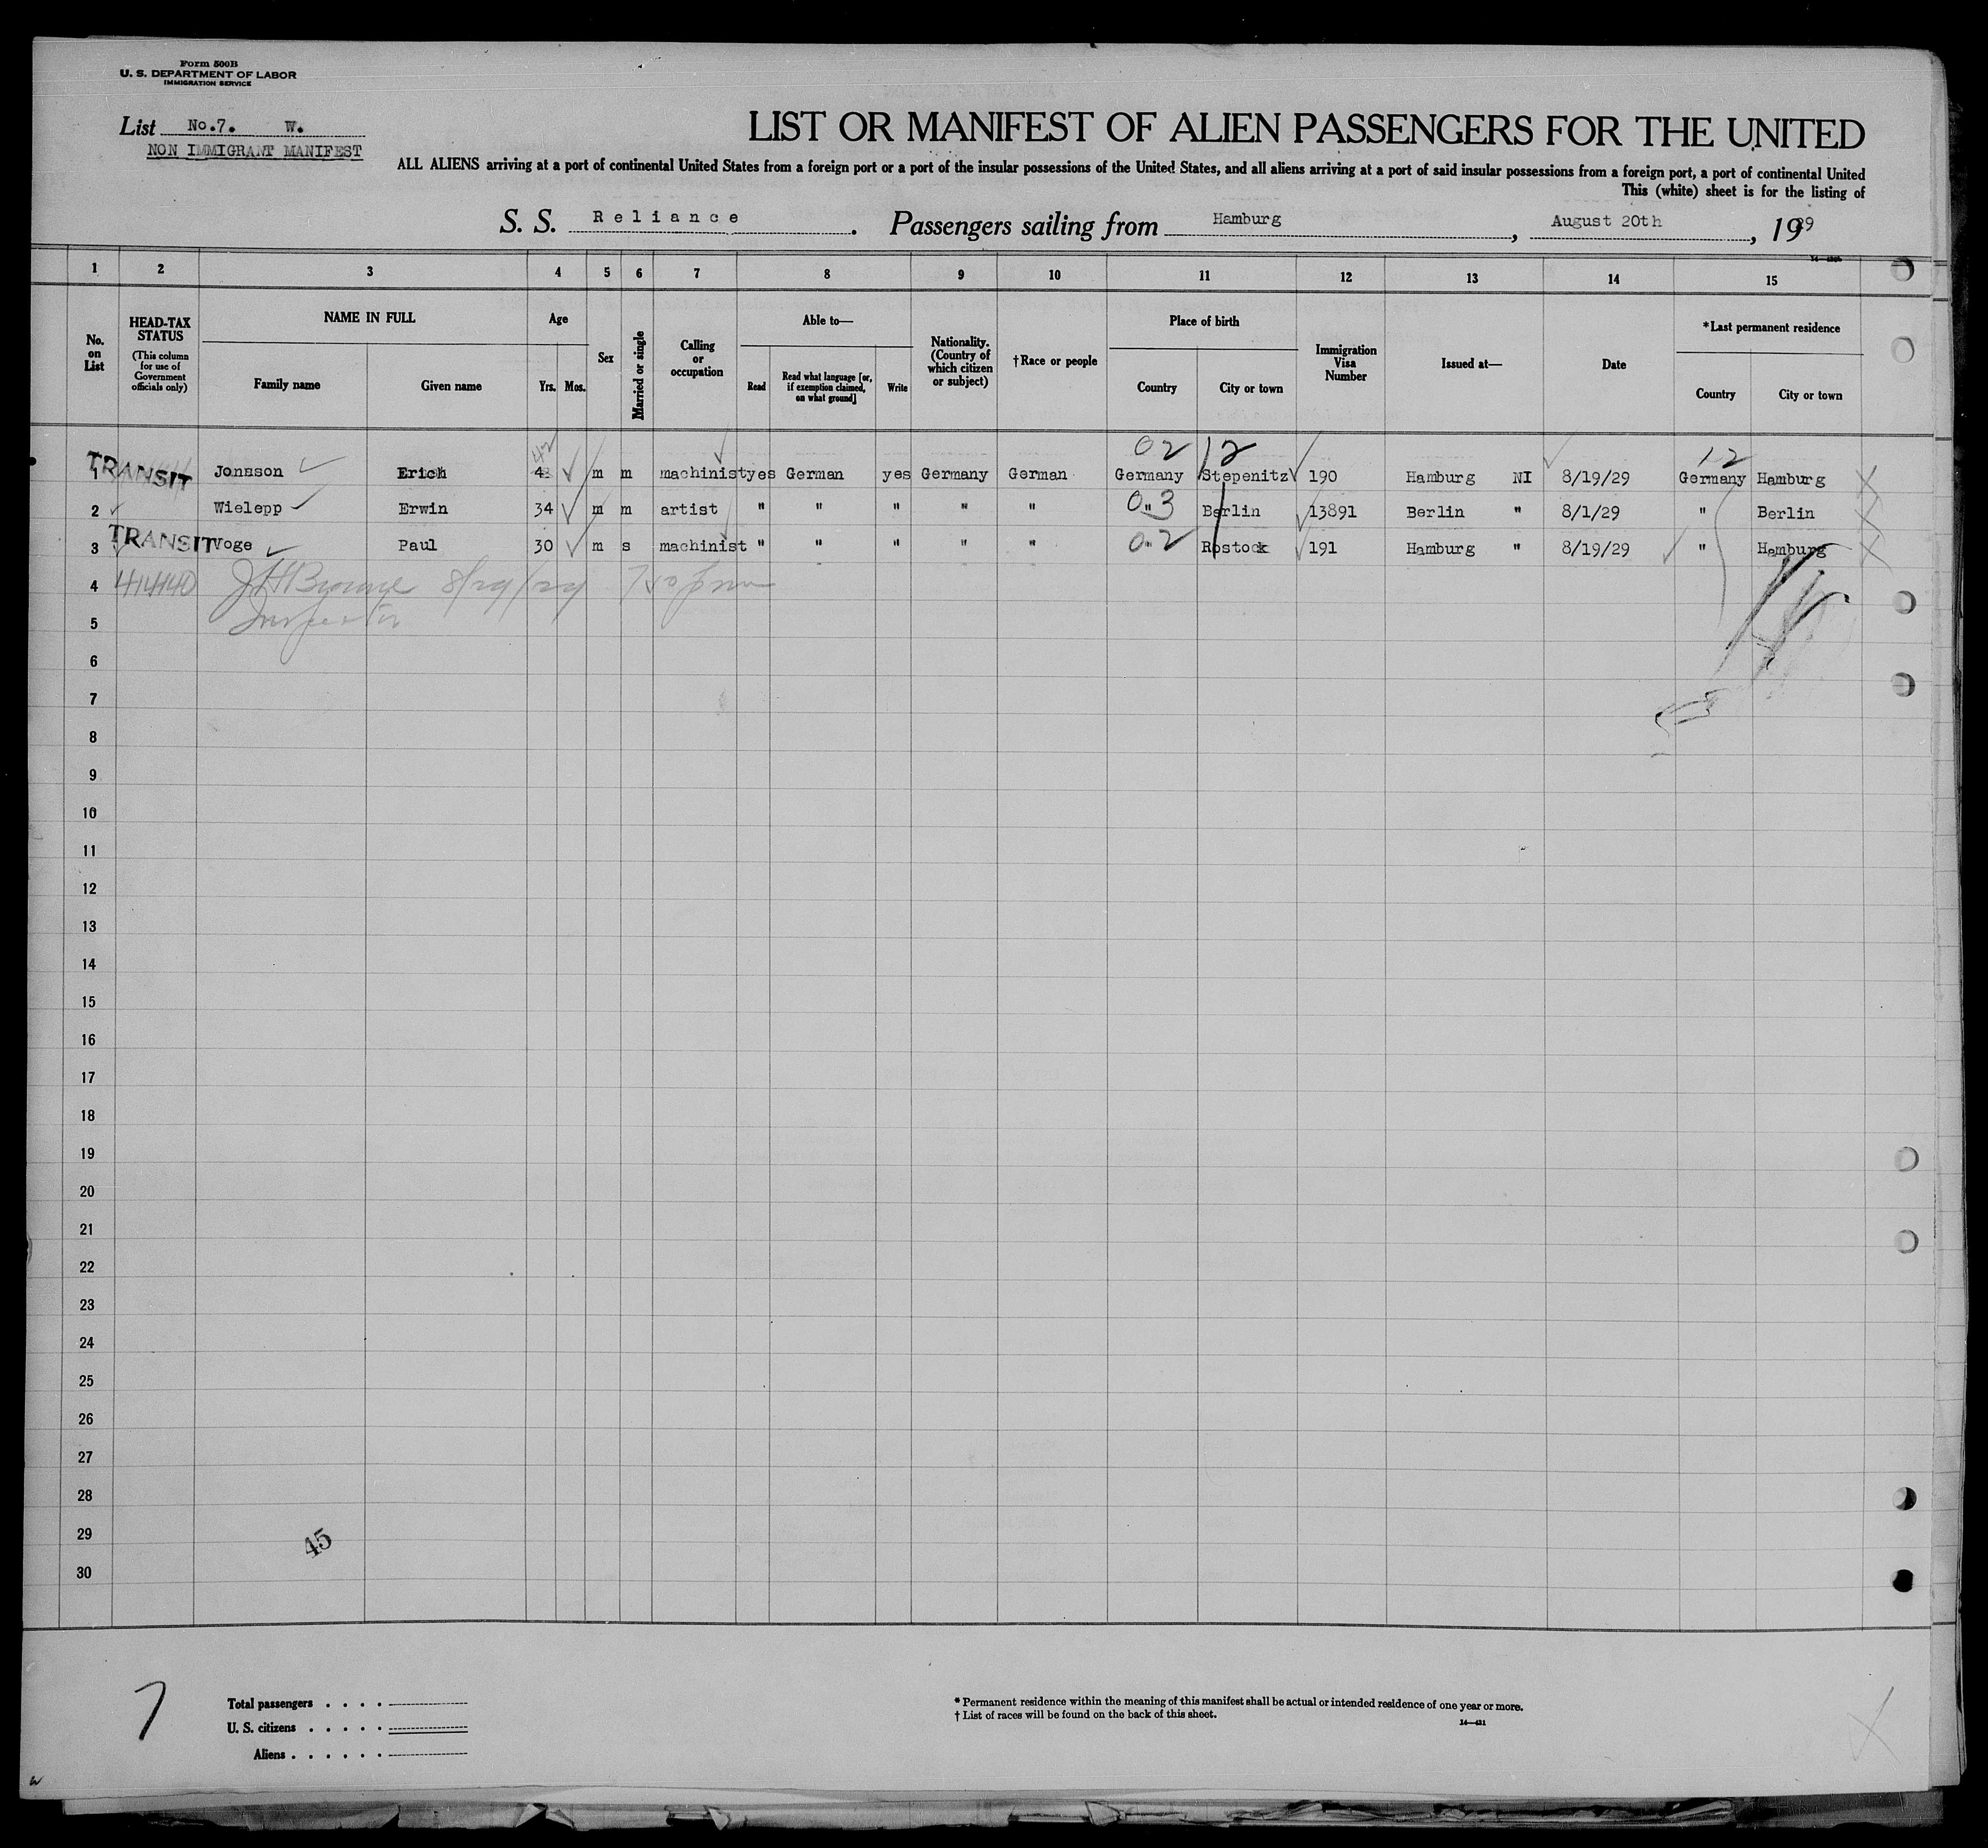 Form 500B
U. S. DEPARTMENT OF LABOR
IMMIGRATION SERVICE
List No.7. W.
NON IMMIGRANT MANIFEST
LIST OR MANIFEST OF ALIEN PASSENGERS FOR THE UNITED
ALL ALIENS arriving at a port of continental United States from a foreign port or a port of the insular possessions of the United States, and all aliens arriving at a port of said insular possessions from a foreign port, a port of continental United
This (white) sheet is for the listing of
S. S. Reliance. Passengers sailing from Hamburg, August 20th, 1929
1 2 3 4 5 6 7 8 9 10 11 12 13 14 15
No. on List
HEAD-TAX STATUS
(This column for use of Government officials only)
NAME IN FULL
Family name Given name
Age
Yrs. Mos.
Sex
Married or single
Calling or occupation
Able to—
Read
Read what language [or, if exemption claimed, on what ground]
Write
Nationality. (Country of which citizen or subject)
†Race or people
Place of birth
Country City or town
Immigration Visa Number
Issued at—
Date
*Last permanent residence
Country City or town
42 02 12 12
1 TRANSIT Jonasson Erich m m machinist yes German yes Germany German Germany Stepenitz 190 Hamburg NI 8/19/29 Germany Hamburg
2 Wielepp Erwin 34 m m artist " " " " " 03 " Berlin 13891 Berlin " 8/1/29 " Berlin
3 TRANSIT Voge Paul 30 m s machinist " " " " " 02 " Rostock 191 Hamburg " 8/19/29 " Hamburg
4 8/29/29 750 pm
5 Inspector
6
7
8
9
10
11
12
13
14
15
16
17
18
19
20
21
22
23
24
25
26
27
28
29
45
30
7
Total passengers . . . .
U. S. citizens . . . . .
Aliens . . . . . .
* Permanent residence within the meaning of this manifest shall be actual or intended residence of one year or more.
† List of races will be found on the back of this sheet.
14—421